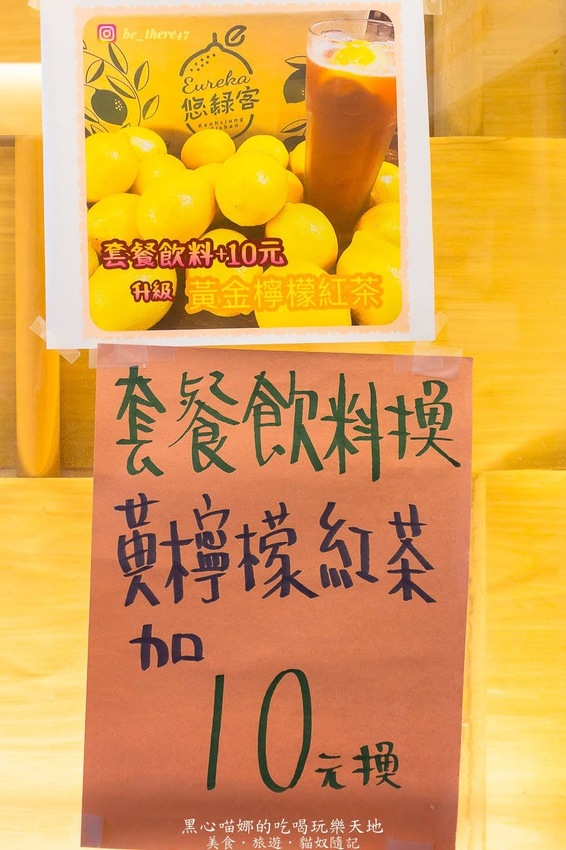 be_there47
Eureka
悠綠客
Kaohsiung
Cishan
套餐飲料+10元
升級 黃金檸檬紅茶
套餐飲料換
黃檸檬紅茶
加
10元換
黑心喵娜的吃喝玩樂天地
美食·旅遊·貓奴隨記